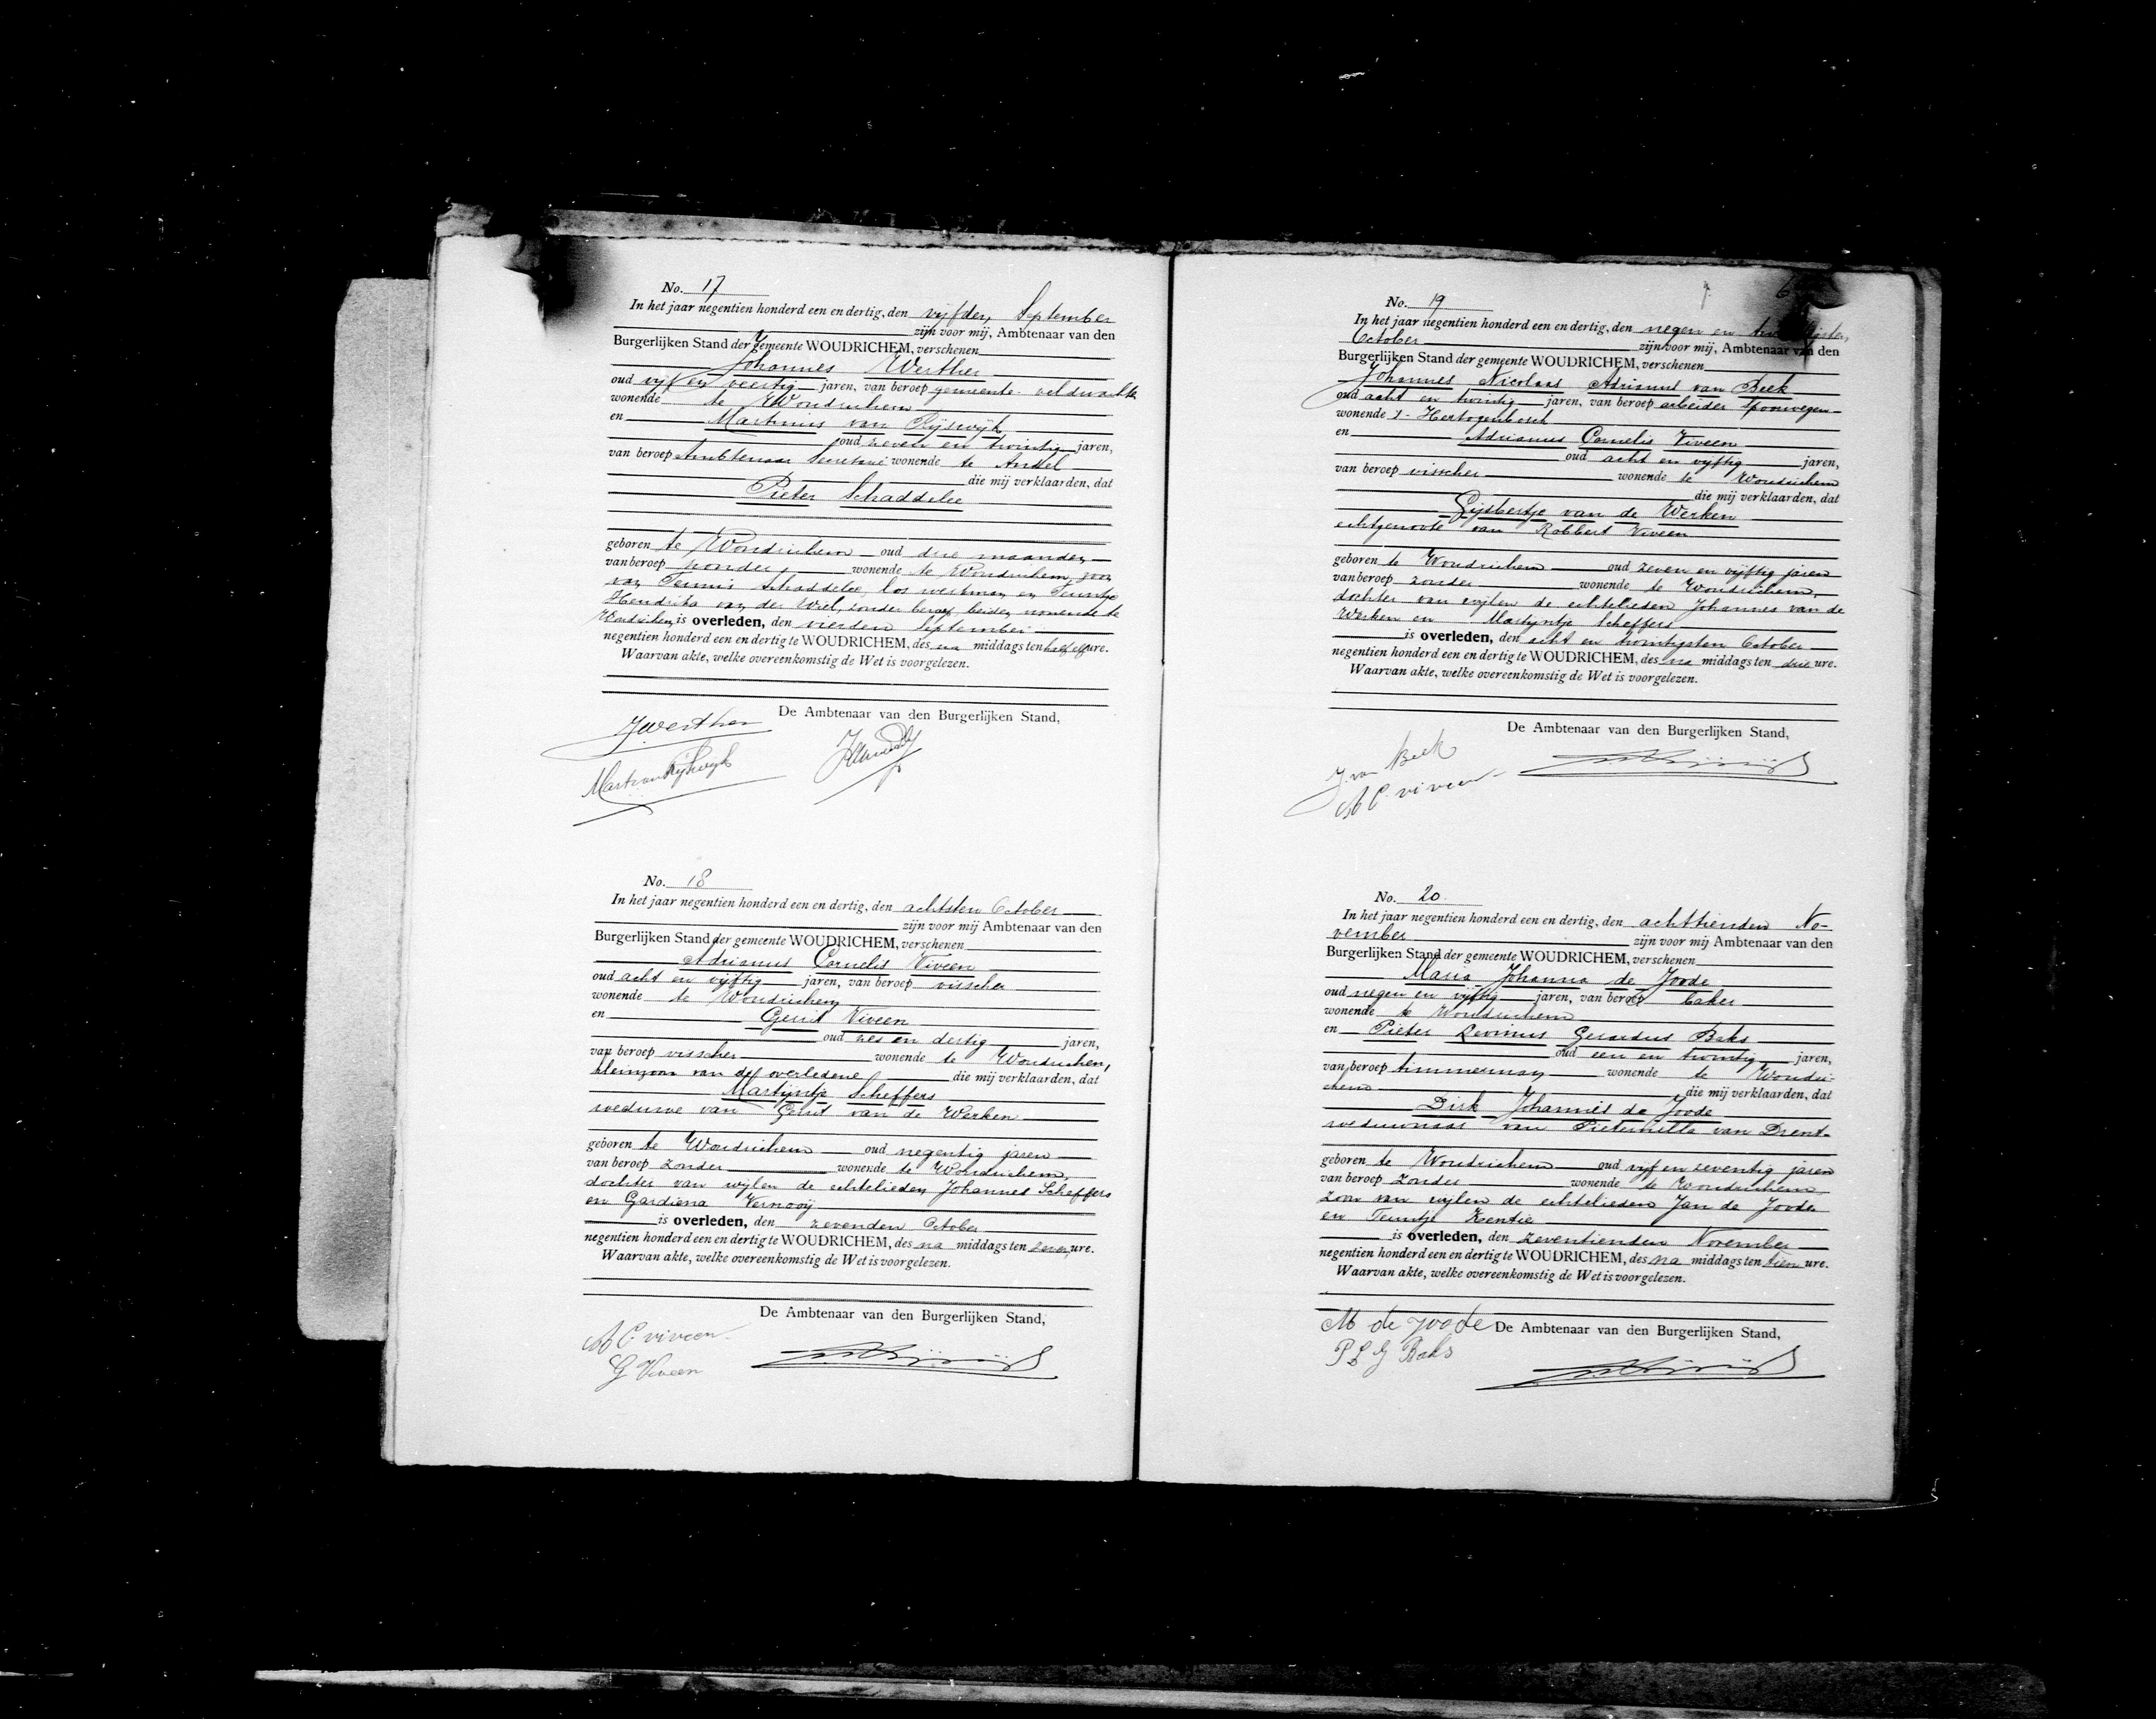 No. 17
In het jaar negentien honderd een en dertig, den vijfden September
zijn voor mij, Ambtenaar van den
Burgerlijken Stand der gemeente WOUDRICHEM, verschenen
Johannes Werther
oud vijf en veertig jaren, van beroep gemeente-veldwachter
wonende te Woudrichem
en Martinus van Rijswijk
oud zeven en twintig jaren,
van beroep Ambtenaar Secretarie wonende te Andel
die mij verklaarden, dat
Pieter Schaddelee
geboren te Woudrichem oud drie maanden
van beroep zonder, wonende te Woudrichem, zoon
van Teunis Schaddelee, los werkman en Teuntje
Hendrika van der Wiel, zonder beroep, beiden wonende te
Woudrichem, is overleden, den vierden September
negentien honderd een en dertig te WOUDRICHEM, des na middags ten half elf ure.
Waarvan akte, welke overeenkomstig de Wet is voorgelezen.
De Ambtenaar van den Burgerlijken Stand,
JWerther
Mart van Rijswijk
No. 18
In het jaar negentien honderd een en dertig, den achtsten October
zijn voor mij Ambtenaar van den
Burgerlijken Stand der gemeente WOUDRICHEM, verschenen
Adrianus Cornelis Viveen
oud acht en vijftig jaren, van beroep visscher
wonende te Woudrichem
en Gerrit Viveen
oud zes en dertig jaren,
van beroep visscher wonende te Woudrichem,
kleinzoon van de overledene die mij verklaarden, dat
Martijntje Scheffers
weduwe van Gerrit van de Werken
geboren te Woudrichem oud negentig jaren
van beroep zonder wonende te Woudrichem,
dochter van wijlen de echtelieden Johannes Scheffers
en Gardiena Vernooij
is overleden, den zevenden October
negentien honderd een en dertig te WOUDRICHEM, des na middags ten zeven ure.
Waarvan akte, welke overeenkomstig de Wet is voorgelezen.
De Ambtenaar van den Burgerlijken Stand,
A C viveen
G Viveen
6
No. 19
In het jaar negentien honderd een en dertig, den negen en twintigsten
October zijn voor mij, Ambtenaar van den
Burgerlijken Stand der gemeente WOUDRICHEM, verschenen
Johannes Nicolaas Adrianus van Beek
oud acht en twintig jaren, van beroep arbeider spoorwegen
wonende 's-Hertogenbosch
en Adrianus Cornelis Viveen
oud acht en vijftig jaren,
van beroep visscher wonende te Woudrichem
die mij verklaarden, dat
Gijsbertje van de Werken
echtgenoote van Robbert Viveen
geboren te Woudrichem oud zeven en vijftig jaren
van beroep zonder wonende te Woudrichem,
dochter van wijlen de echtelieden Johannes van de
Werken en Martijntje Scheffers
is overleden, den acht en twintigsten October
negentien honderd een en dertig te WOUDRICHEM, des na middags ten drie ure.
Waarvan akte, welke overeenkomstig de Wet is voorgelezen.
De Ambtenaar van den Burgerlijken Stand,
J. van Beek
A C. viveen
No. 20.
In het jaar negentien honderd een en dertig, den achttienden No-
vember zijn voor mij Ambtenaar van den
Burgerlijken Stand der gemeente WOUDRICHEM, verschenen
Maria Johanna de Joode
oud negen en vijftig jaren, van beroep baker
wonende te Woudrichem
en Pieter Levinus Gerardus Baks
oud een en twintig jaren,
van beroep timmerman wonende te Woudri-
chem die mij verklaarden, dat
Dirk Johannes de Joode
weduwnaar van Pieternella van Drent
geboren te Woudrichem oud vijf en zeventig jaren
van beroep zonder wonende te Woudrichem,
zoon van wijlen de echtelieden Jan de Joode
en Teuntje Kentie
is overleden, den zeventienden November
negentien honderd een en dertig te WOUDRICHEM, des na middags ten tien ure.
Waarvan akte, welke overeenkomstig de Wet is voorgelezen.
M de Joode De Ambtenaar van den Burgerlijken Stand,
P L G Baks